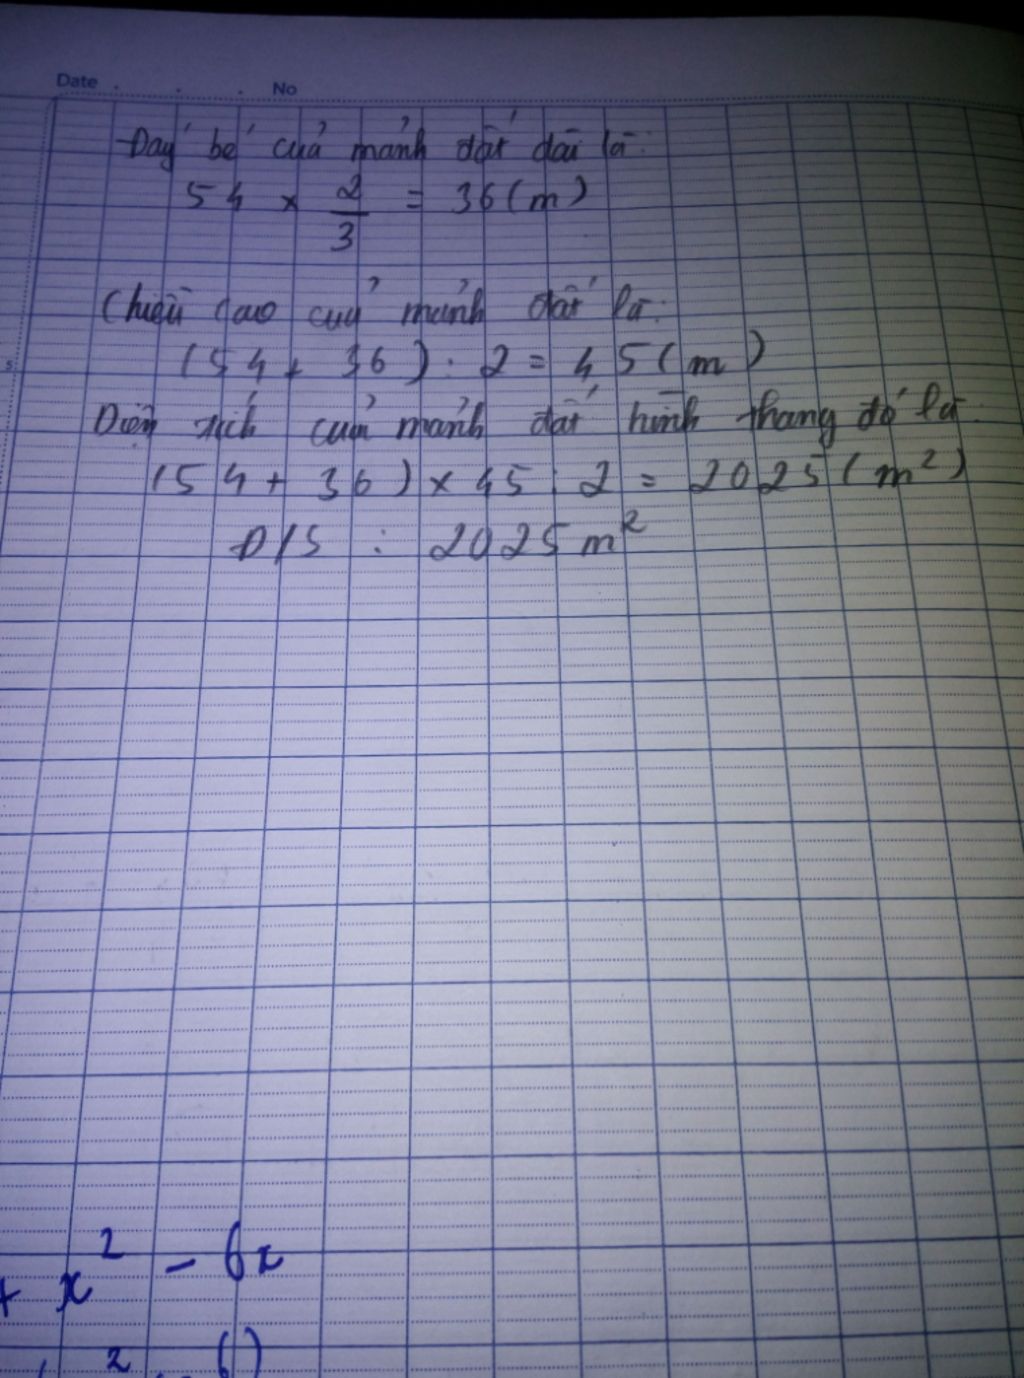 Date . . . No
Đáy bé của mảnh đất đai là:
54 x 2/3 = 36 (m)
Chiều cao của mảnh đất là:
(54 + 36) : 2 = 45 (m)
Diện tích của mảnh đất hình thang đó là:
(54 + 36) x 45 : 2 = 2025 (m²)
Đ/S : 2025 m²
+ x² - 6x